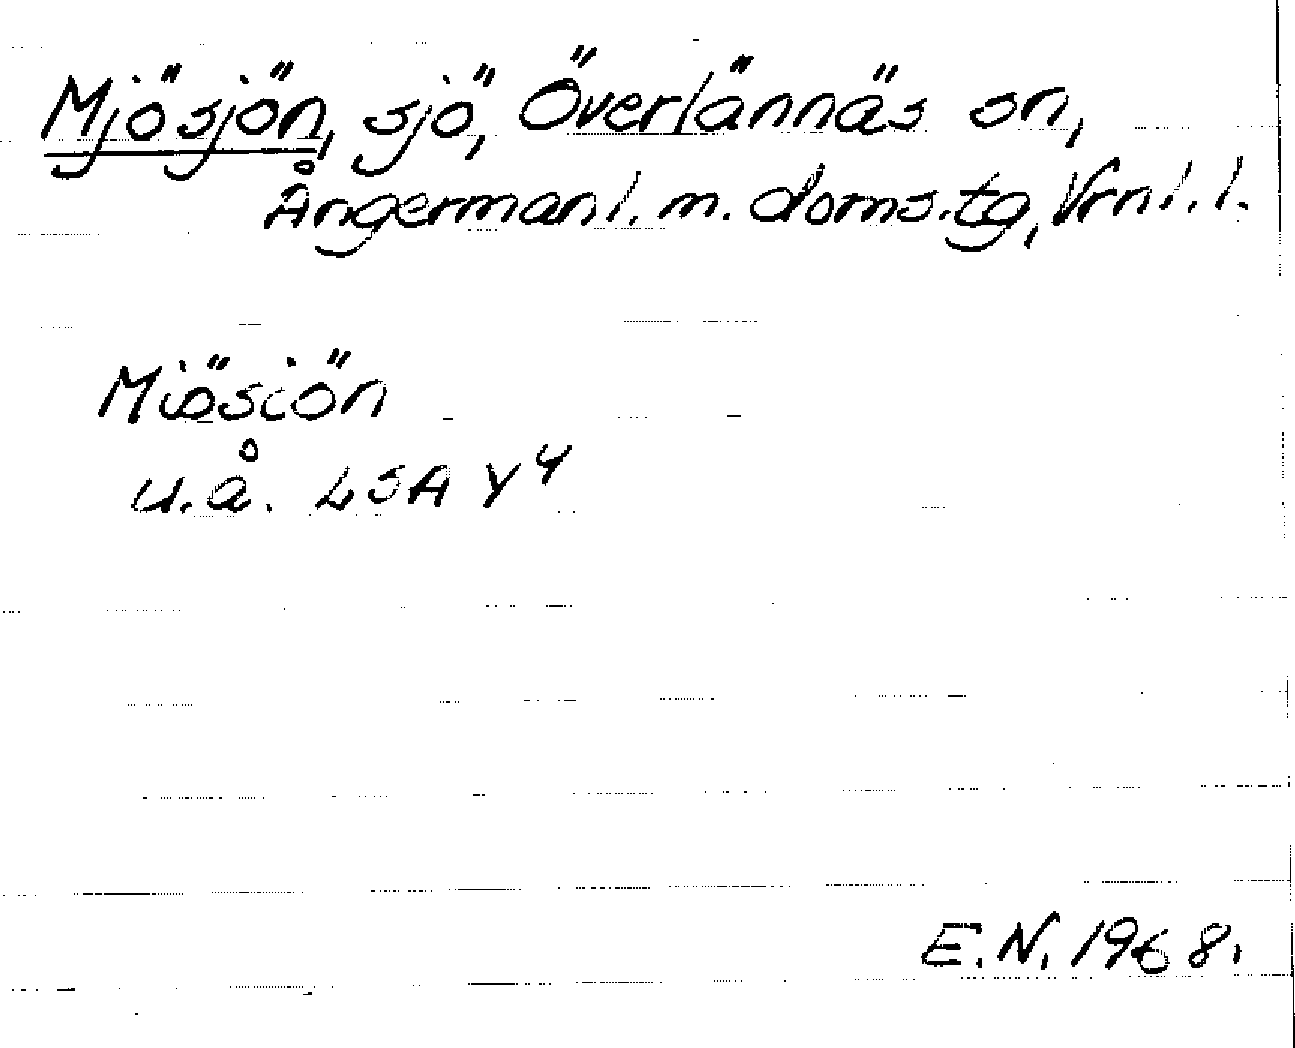 Mjösjön, sjö, Överlännäs sn,
Ångermanl. m. doms.tg, Vrnl. l.
Miösiön
u.å. LSA Y⁴
E.N. 1968.